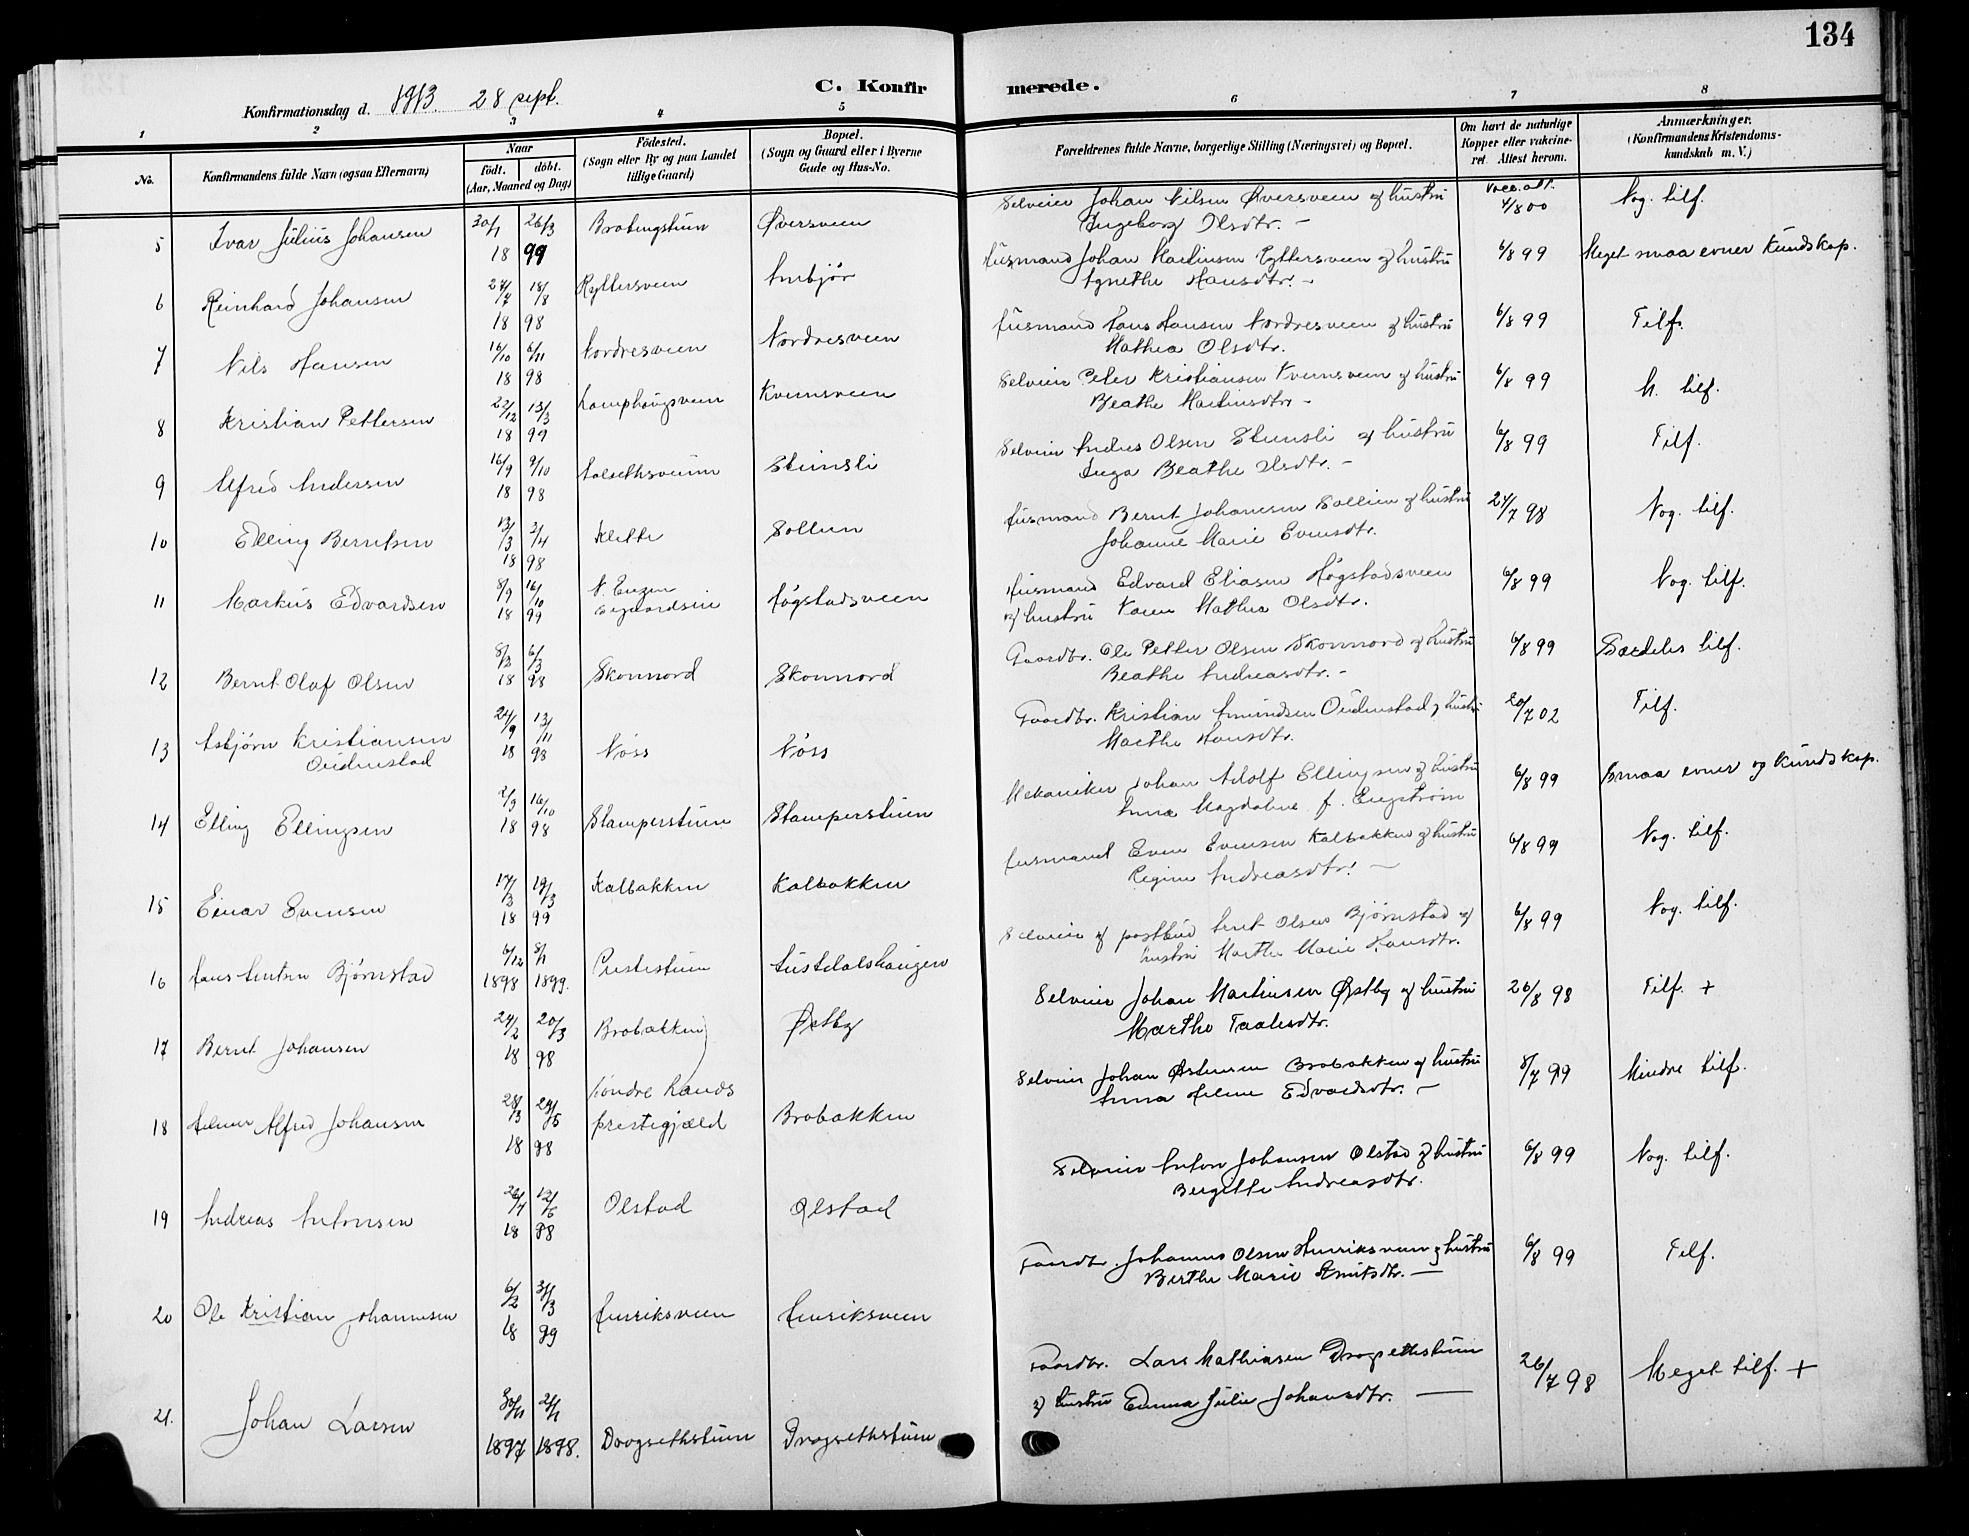 134
C. Konfirmerede.
Konfirmationsdag d. 1913. 28 sept.
1 2 3 4 5 6 7 8
No.
Konfirmandens fulde Navn (ogsaa Efternavn)
Naar
födt. döbt.
(Aar, Maaned og Dag)
Födested.
(Sogn eller By og paa Landet
tillige Gaard)
Bopæl.
(Sogn og Gaard eller i Byerne
Gade og Hus-No.
Forældrenes fulde Navne, borgerlige Stilling (Næringsvei) og Bopæl.
Om havt de naturlige
Kopper eller vakcine-
ret. Attest herom.
Anmærkninger.
(Konfirmandens Kristendoms-
kundskab m. V.)
5 Ivar Julius Johansen 30/1 26/3 18 99 Bratengstuen Øversveen Selveier Johan Nilsen Øversveen og hustru
Ingeborg Olsdtr. – Vacc. att. 4/8 00 Nog. tilf.
6 Reinhard Johansen 27/7 18/8 18 98 Ryttersveen Anbjør Husmand Johan Martinsen Ryttersveen og hustru
Agnethe Hansdtr. – 6/8 99 Meget smaa evner kundskap.
7 Nils Hansen 16/10 6/11 18 98 Nordresveen Nordresveen Husmand Hans Hansen Nordresveen og hustru
Mathea Olsdtr. 6/8 99 Tilf.
8 Kristian Pettersen 22/12 13/3 18 99 Kvernsveen Selveier Peter Kristiansen Kvernsveen og hustru
Beathe Martinsdtr – 6/8 99 M. tilf.
9 Alfred Andersen 16/9 9/10 18 98 Skinsli Selveier Andres Olsen Skinsli og hustru
Inga Beathe Olsdtr. – 6/8 99 Tilf.
10 Elling Berntsen 13/3 3/4 18 98 Klette Sollien Husmand Bernt Johansen Sollien og hustru
Johanne Marie Evensdtr. 27/7 98 Nog. tilf.
11 Markus Edvardsen 8/9 16/10 18 99 N. Engen Høgstadsveen Husmand Edvard Eliasen Høgstadsveen
og hustru Karen Mathea Olsdtr. 6/8 99 Nog. tilf.
12 Bernt Olaf Olsen 8/2 6/3 18 98 Skonnord Skonnord Gaardbr. Ole Petter Olsen Skonnord og hustru
Beathe Andreasdtr. – 6/8 99 Særdeles tilf.
13 Asbjørn Kristiansen
Oudenstad 24/9 13/11 18 98 Nöss Nöss Gaardbr. Kristian Amundsen Oudenstad og hustru
Marthe Hansdtr. 20/7 02 Tilf.
14 Elling Ellingsen 2/9 16/10 18 98 Stamperstuen Stamperstuen Mekaniker Johan Adolf Ellingsen og hustru
Anna Magdalene f. Engstrøm 6/8 99 Smaa evner og kundskap.
15 Einar Evensen 17/2 19/3 18 99 Kalbakken Kalbakken Husmand Even Evensen Kalbakken og hustru
Regine Andreasdtr. – 6/8 99 Nog. tilf.
16 Hans Antsen Bjørnstad 6/12 8/1 1898 1899. Prestestuen Austdalshaugen Selveier og postbud Arnt Olsen Bjørnstad og
hustru Marthe Marie Hansdtr. 6/8 99 Nog. tilf.
17 Bernt Johansen 24/2 20/3 18 98 Brobakken Østby Selveier Johan Martinsen Østby og hustru
Marthe Paalsdtr. 26/8 98 Tilf. +
18 Helmer Alfred Johansen 28/3 29/5 18 98 Söndre Lands
prestegjæld Brobakken Selveier Johan Østensen Brobakken og hustru
Anna Helene Edvardsdtr. – 8/7 99 Mindre tilf.
19 Andreas Antonsen 26/4 12/6 18 98 Olstad Olstad Selveier Anton Johansen Olstad og hustru
Bergitte Andreasdtr. 6/8 99 Nog. tilf.
20 Ole Kristian Johannesen 6/2 31/3 18 99 Henriksveen Henriksveen Gaardbr. Johannes Olsen Henriksveen og hustru
Berthe Marie Knutsdtr. – 6/8 99 Tilf.
21. Johan Larsen 30/11 2/1 1897 1898. Drogsethstuen Drogsethstuen Gaardbr. Lars Mathiasen Drogsethstuen
og hustru Emma Julie Johansdtr. – 26/7 98 Meget tilf. +